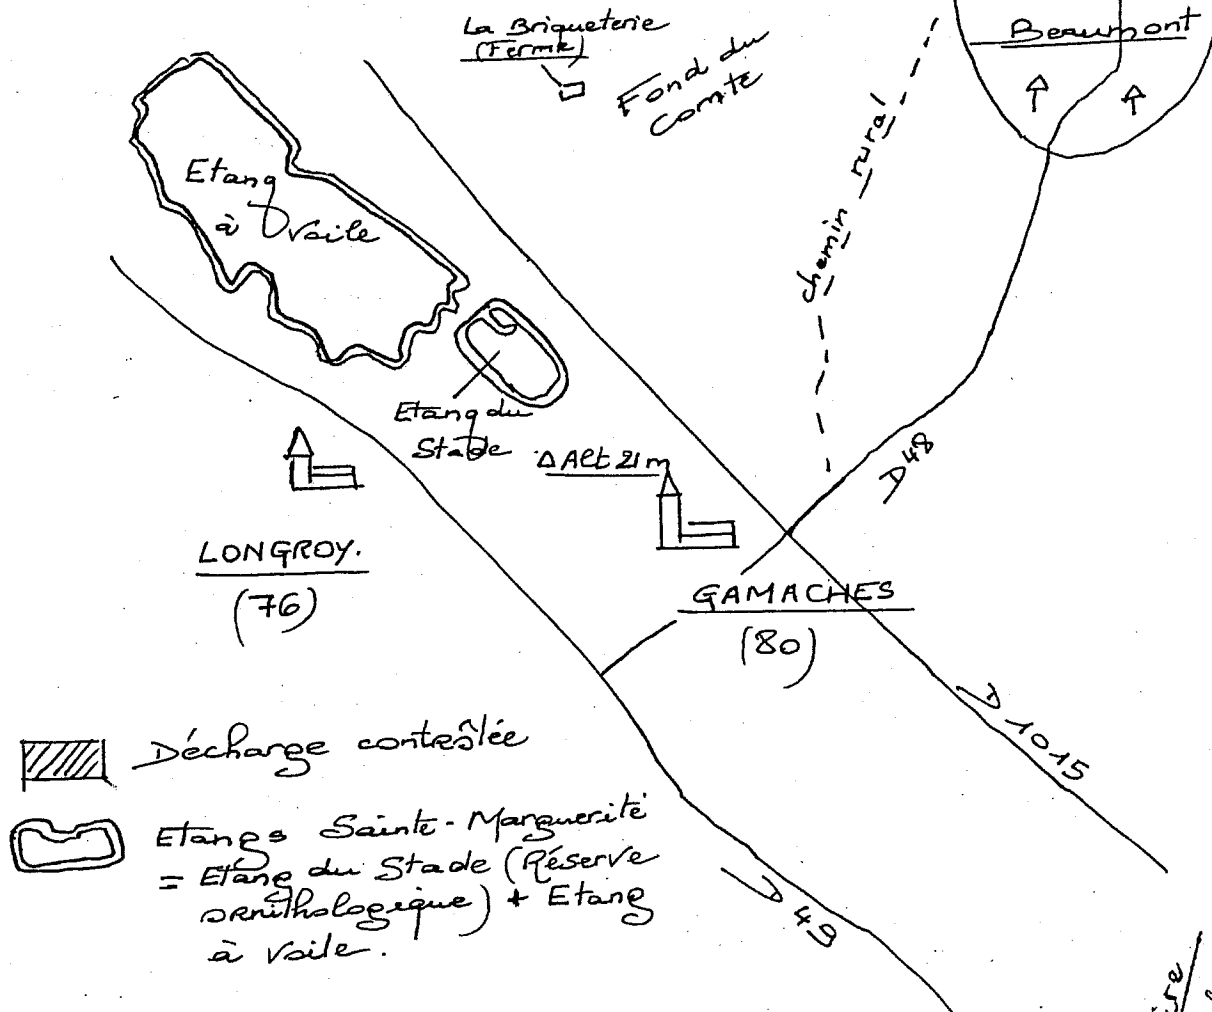 La Briqueterie
(Ferme)
Fond du
comte
Beaumont
chemin rural
Etang
à Voile
Etang du
Stade
Δ Alt 21 m
D 48
LONGROY.
(76)
GAMACHES
(80)
D 1015
D 49
Décharge contrôlée
Etangs Sainte-Marguerite
= Etang du Stade (Réserve
ornithologique) + Etang
à voile.